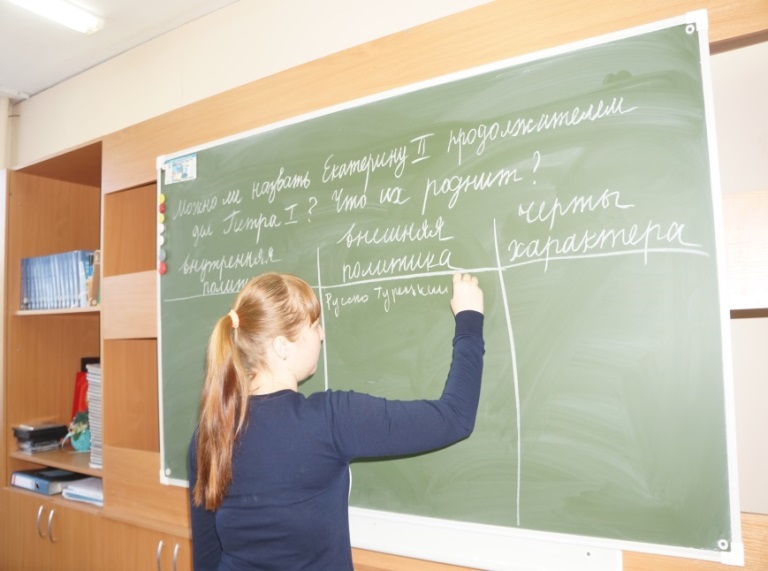 Можно ли назвать Екатерину II продолжателем
дел Петра I? Что их роднит?
внутренняя
полит
внешняя
политика
черты
характера
Русско Турецкий